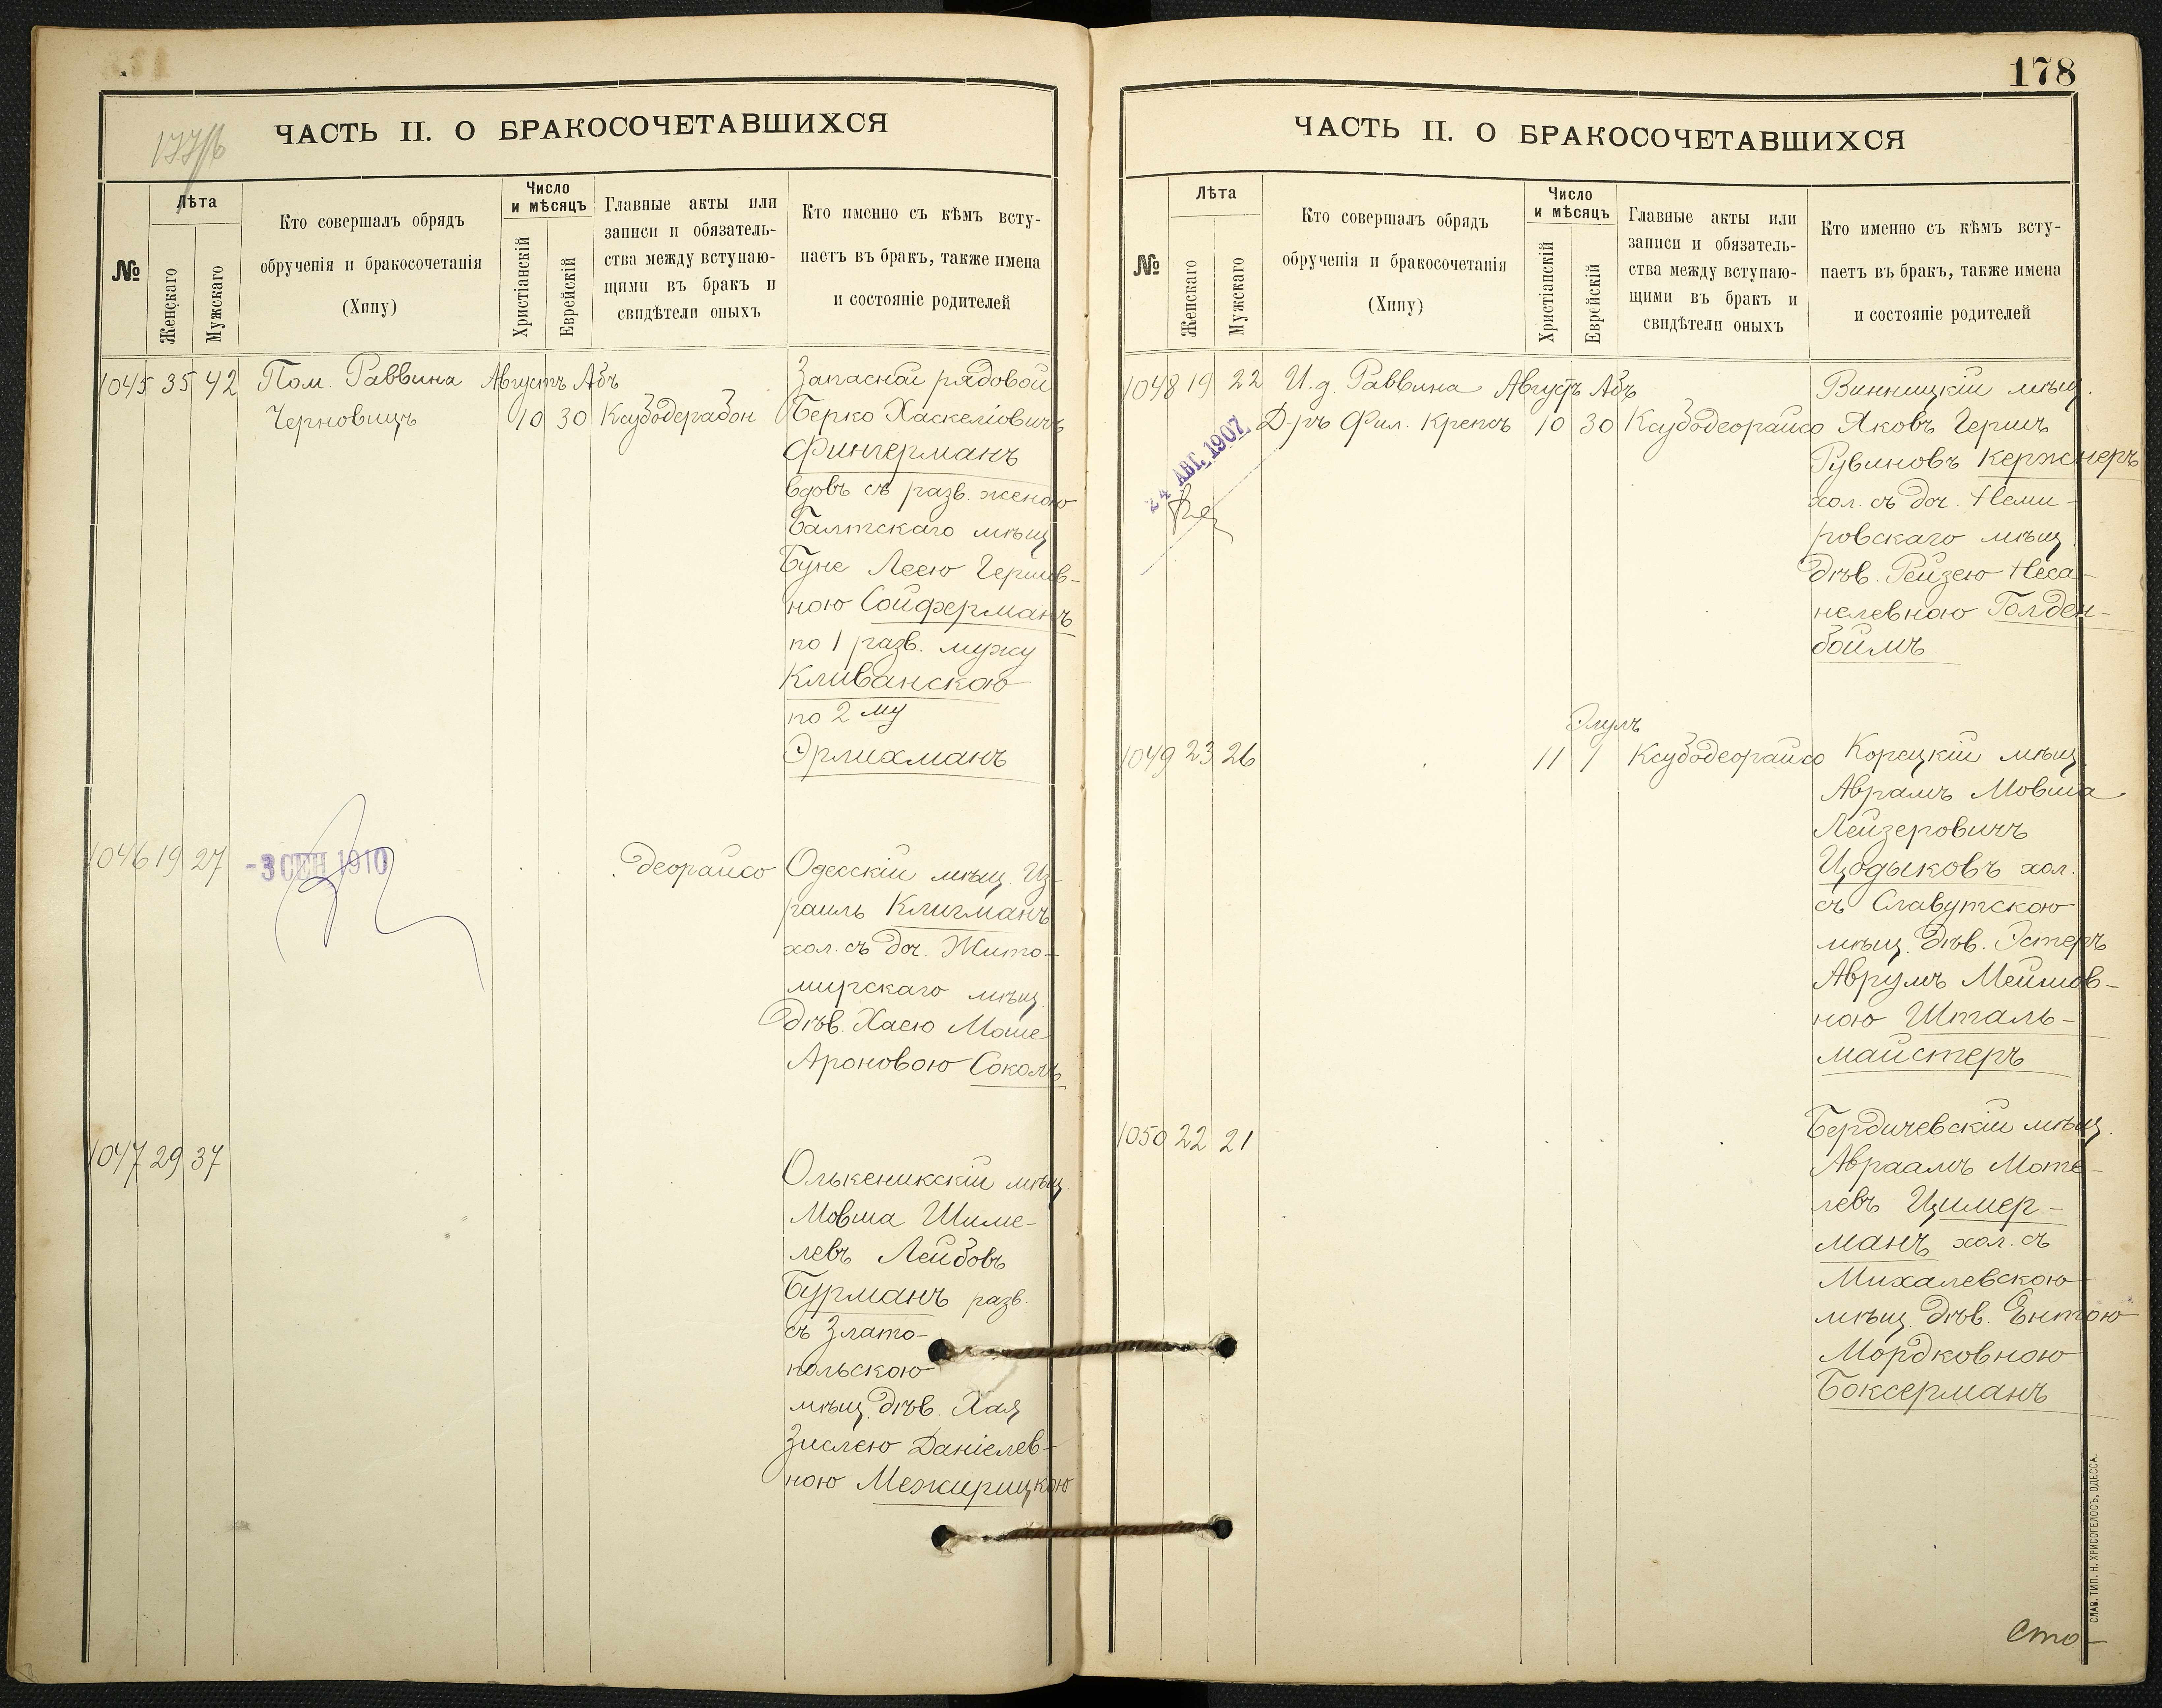 177/б
ЧАСТЬ II. О БРАКОСОЧЕТАВШИХСЯ
№
Лѣта
Женскаго
Мужскаго
Кто совершалъ обрядъ
обрученія и бракосочетанія
(Хипу)
Число
и мѣсяцъ
Христіанскій
Еврейскій
Главные акты или
записи и обязатель-
ства между вступаю-
щими въ бракъ и
свидѣтели оныхъ
Кто именно съ кѣмъ всту-
паетъ въ бракъ, также имена
и состояніе родителей
1045 35 42 Пом. Раввина Августъ Абъ
Черновицъ 10 30 Ксубодерабон
Запасной рядовой
Берко Хаскеліовичъ
Фингерманъ
вдовъ съ разв. женою
Балтскаго мѣщ
Буне Леею Гершов-
ною Сойферманъ
по 1 разв. мужу
Кливанскою
по 2 му
Эрлихманъ
1046 19 27 -3 СЕН 1910 деорайсо
Одесскій мѣщ. Из-
раиль Клигманъ
хол. съ доч. Жито-
мирскаго мѣщ.
дѣв. Хаею Моше
Ароновою Соколъ
1047 29 37
Олькеникскій мѣщ.
Мовша Шиме-
левъ Лейбовъ
Бурманъ разв.
съ Злато-
польскою
мѣщ. дѣв. Хая
Зислею Даніелев-
ною Межирицкою
178
ЧАСТЬ II. О БРАКОСОЧЕТАВШИХСЯ
№
Лѣта
Женскаго
Мужскаго
Кто совершалъ обрядъ
обрученія и бракосочетанія
(Хипу)
Число
и мѣсяцъ
Христіанскій
Еврейскій
Главные акты или
записи и обязатель-
ства между вступаю-
щими въ бракъ и
свидѣтели оныхъ
Кто именно съ кѣмъ всту-
паетъ въ бракъ, также имена
и состояніе родителей
1048 19 22 И.д. Раввина Августъ Абъ
Д-ръ Фил. Крепсъ 10 30 Ксубодеорайсо
24 АВГ. 1907
Винницкій мѣщ.
Яковъ Гершъ
Рувиновъ Кержнеръ
хол. съ доч. Неми-
ровскаго мѣщ.
дѣв. Рейзею Неса-
нелевною Голден-
боймъ
Элулъ
1049 23 26 11 1 Ксубодеорайсо
Корецкій мѣщ.
Аврамъ Мовша
Лейзеровичъ
Цодыковъ хол.
съ Славутскою
мѣщ. дѣв. Эстеръ
Аврумъ Меишов-
ною Шталь-
майстеръ
1050 22 21
Бердичевскій мѣщ.
Авраамъ Моте-
левъ Цимер-
манъ хол. съ
Михалевскою
мѣщ. дѣв. Ентою
Мордковною
Боксерманъ
Сто-
СЛАВ. ТИП. Н. ХРИСОГЕЛОСЪ, ОДЕССА.